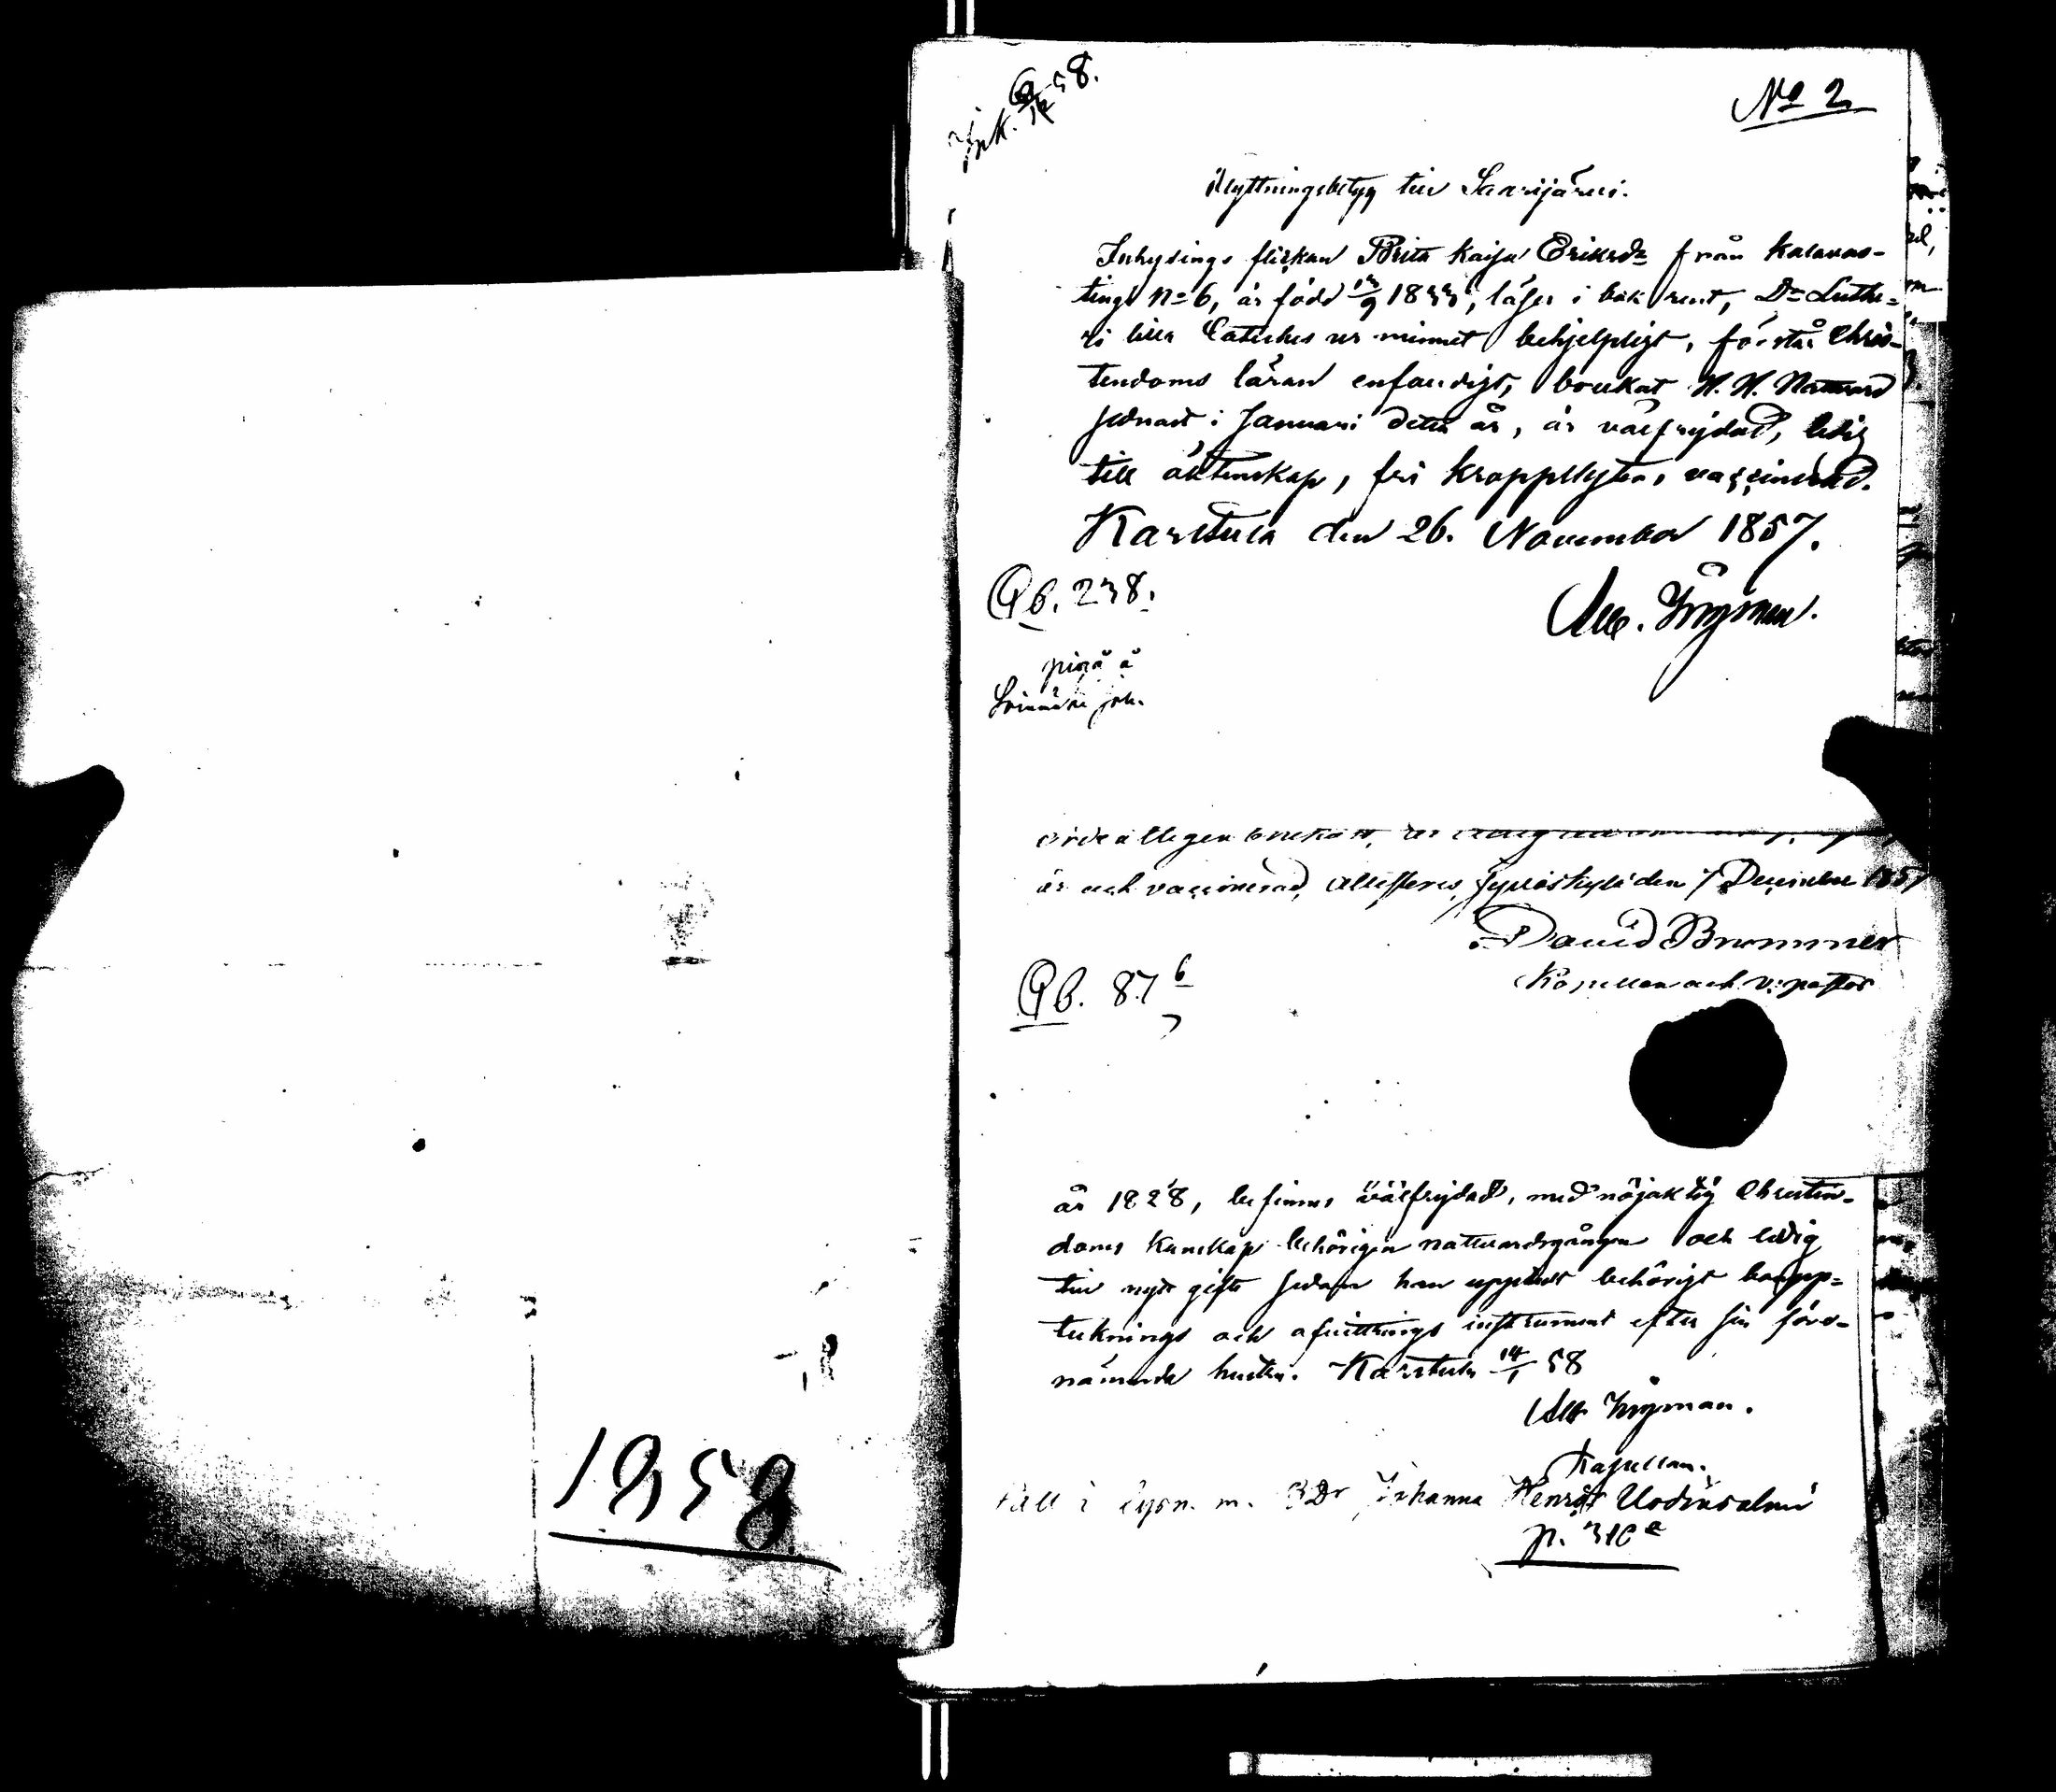 1858
Ink. 58.
No 2
Flyttningsbetyg till Saarijärvi.
Inhysings flickan Brita Kaisa Eriksdr från Kalavas-
tinge No 6, är född 1833, läser i bok rent, Dr Luthe-
ri lilla Cateches ur minnet behjelpligt, förstår Chris-
tendoms läran enfaldigt, brukat H. H. Nattvard
sednast i Januari detta år, är välfrejdad, ledig
till äktenskap, fri kroppslyten, vaccinerad.
Karstula den 26. November 1857.
Alb. Ingman.
Qb. 238.
piga å
ordentligen brukat, är
är och vaccinerad, attesteras, Jyväskylä den 7 December 1857
David Brummer
Kapellan och v: pastor
Qb. 87 b
år 1828, befinnes välfrejdad, med nöjaktig Christen-
doms kunskap behörigen nattvardsgången och ledig
till nytt gifte sedan han upplåst behörigt boupp-
tecknings och afvittrings instrument efter sin före-
nämnda hustru. Karstula 14/1 58
Alb Ingman.
Kapellan.
i lysn. m. BDr Johanna Henrsdr Uodinsalmi
p. 310 a